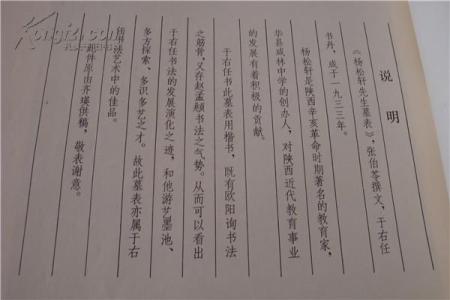 说明
《杨松轩先生墓表》，张伯苓撰文，于右任
书丹，成于一九三三年。
杨松轩是陕西辛亥革命时期著名的教育家，
华县咸林中学的创办人，对陕西近代教育事业
的发展有着积极的贡献。
于右任书此墓表用楷书，既有欧阳询书法
之筋骨，又存赵孟頫书法之气势。从而可以看出
于右任书法的发展演化之迹，和他游艺墨池、
多方探索、多识多艺之才。故此墓表亦属于右
任书法艺术中的佳品。
此件原由齐瑛供稿，敬表谢意。